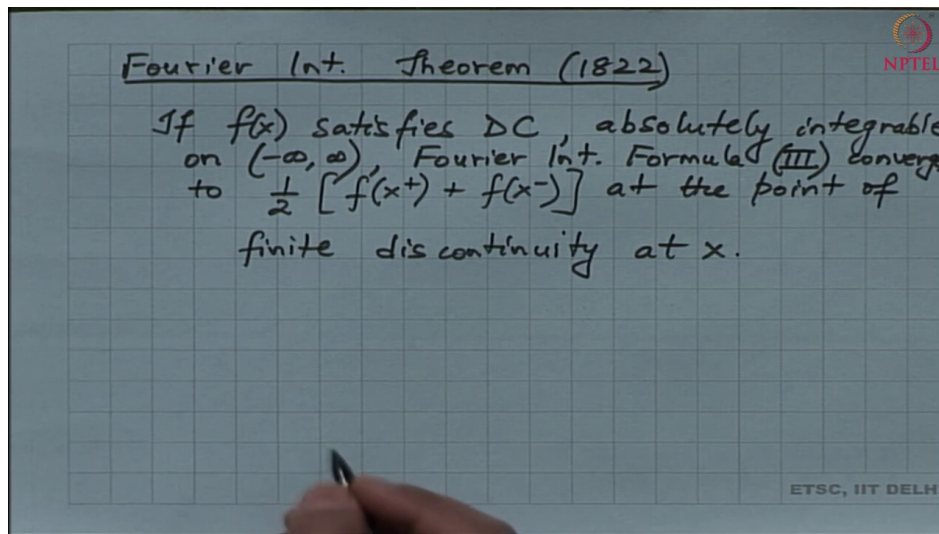 Fourier Int. Theorem (1822)
NPTEL
If f(x) satisfies DC, absolutely integrable
on (-∞, ∞), Fourier Int. Formula (III) converg
to 1/2 [f(x+) + f(x-)] at the point of
finite discontinuity at x.
ETSC, IIT DELH